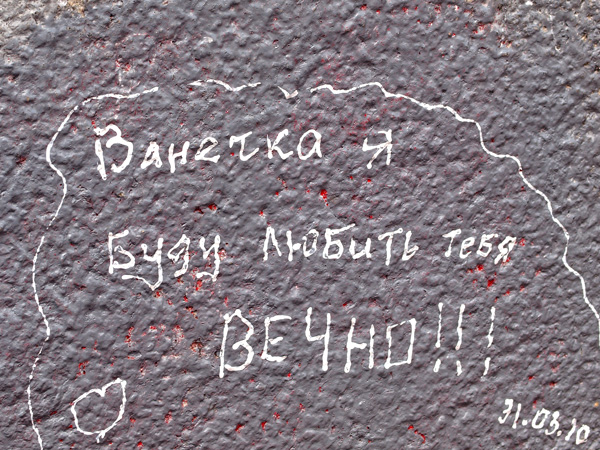 Ванечка я
Буду любить тебя
ВЕЧНО!!!
31.03.10